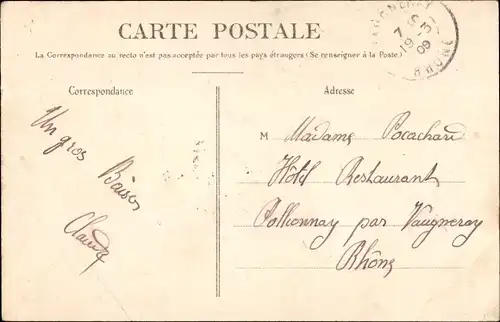 CARTE POSTALE
La Correspondance au recto n'est pas acceptée par tous les pays étrangers (Se renseigner à la Poste.)
Correspondance
Un gros
Baiser
Claude
Adresse
M Madame Pocachard
Hôtel Restaurant
Pollionnay par Vaugneray
Rhône
VAUGNERAY
7
19 -3
09
RHONE